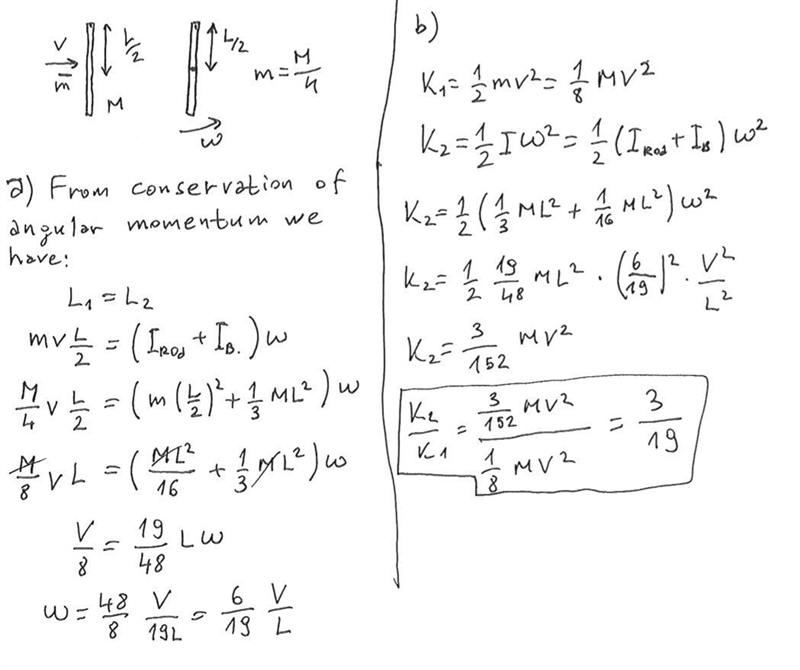 V
m
L/2
M
L/2
ω
m = M/4
a) From conservation of
angular momentum we
have:
L₁ = L₂
mv L/2 = (I_Rod + I_B.) ω
M/4 v L/2 = (m (L/2)² + 1/3 ML²) ω
M/8 vL = (ML²/16 + 1/3 ML²) ω
V/8 = 19/48 Lω
ω = 48/8 V/19L = 6/19 V/L
b)
K₁ = 1/2 mv² = 1/8 MV²
K₂ = 1/2 Iω² = 1/2 (I_Rod + I_B) ω²
K₂ = 1/2 (1/3 ML² + 1/16 ML²) ω²
K₂ = 1/2 19/48 ML² · (6/19)² · V²/L²
K₂ = 3/152 MV²
K₂/K₁ = (3/152 MV²)/(1/8 MV²) = 3/19